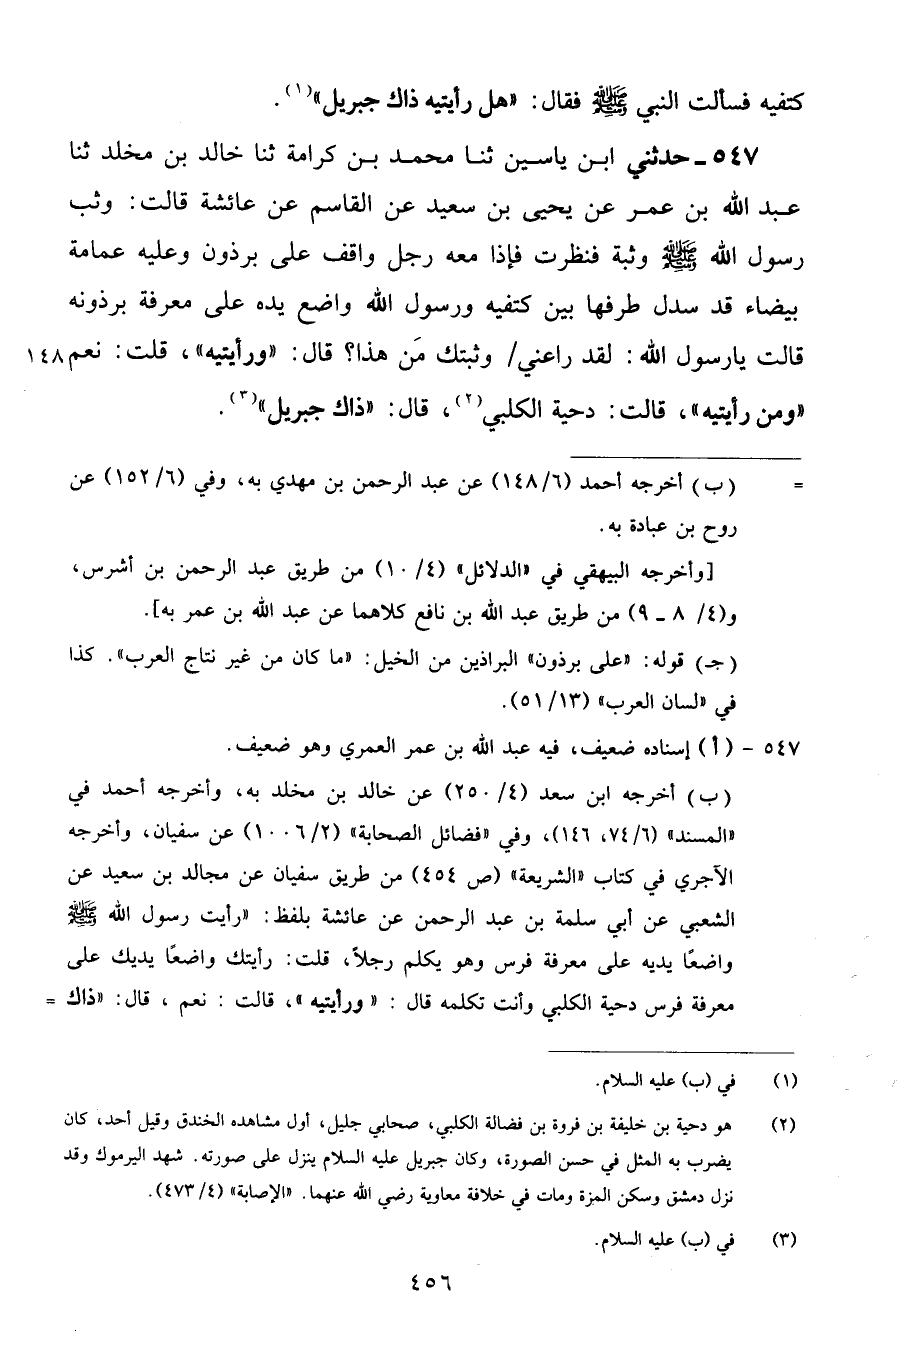 كتفيه فسألت النبي ﷺ فقال: «هل رأيتيه ذاك جبريل»(١).
٥٤٧ ـ حدثني ابن ياسين ثنا محمد بن كرامة ثنا خالد بن مخلد ثنا
عبد الله بن عمر عن يحيى بن سعيد عن القاسم عن عائشة قالت: وثب
رسول الله ﷺ وثبة فنظرت فإذا معه رجل واقف على برذون وعليه عمامة
بيضاء قد سدل طرفها بين كتفيه ورسول الله واضع يده على معرفة برذونه
قالت يارسول الله: لقد راعني/ وثبتك مَن هذا؟ قال: «ورأيتيه»، قلت: نعم ١٤٨
«ومن رأيتيه»، قالت: دحية الكلبي(٢)، قال: «ذاك جبريل»(٣).
= (ب) أخرجه أحمد (١٤٨/٦) عن عبد الرحمن بن مهدي به، وفي (١٥٢/٦) عن
روح بن عبادة به.
[وأخرجه البيهقي في «الدلائل» (١٠/٤) من طريق عبد الرحمن بن أشرس،
و(٤/ ٨ ـ ٩) من طريق عبد الله بن نافع كلاهما عن عبد الله بن عمر به].
(جـ) قوله: «على برذون» البراذين من الخيل: «ما كان من غير نتاج العرب». كذا
في «لسان العرب» (٥١/١٣).
٥٤٧ - (أ) إسناده ضعيف، فيه عبد الله بن عمر العمري وهو ضعيف.
(ب) أخرجه ابن سعد (٢٥٠/٤) عن خالد بن مخلد به، وأخرجه أحمد في
«المسند» (٧٤/٦، ١٤٦)، وفي «فضائل الصحابة» (١٠٠٦/٢) عن سفيان، وأخرجه
الآجري في كتاب «الشريعة» (ص ٤٥٤) من طريق سفيان عن مجالد بن سعيد عن
الشعبي عن أبي سلمة بن عبد الرحمن عن عائشة بلفظ: «رأيت رسول الله ﷺ
واضعًا يديه على معرفة فرس وهو يكلم رجلاً، قلت: رأيتك واضعًا يديك على
معرفة فرس دحية الكلبي وأنت تكلمه قال: «ورأيتيه»، قالت: نعم، قال: «ذاك =
(١) في (ب) عليه السلام.
(٢) هو دحية بن خليفة بن فروة بن فضالة الكلبي، صحابي جليل، أول مشاهده الخندق وقيل أحد، كان
يضرب به المثل في حسن الصورة، وكان جبريل عليه السلام ينزل على صورته. شهد اليرموك وقد
نزل دمشق وسكن المزة ومات في خلافة معاوية رضي الله عنهما. «الإصابة» (٤٧٣/٤).
(٣) في (ب) عليه السلام.
٤٥٦